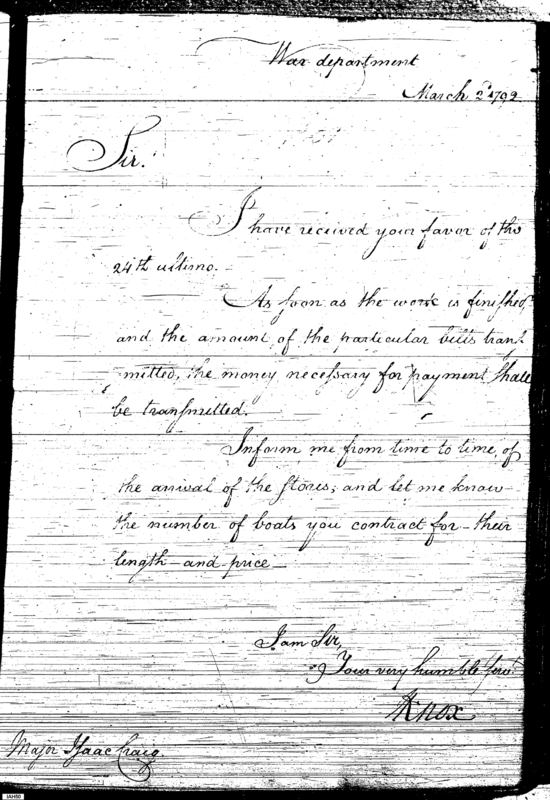 War department
March 2d 1792
Sir.
I have received your favor of the
24th ultimo.
As soon as the work is finished
and the amount of the particular bills trans-
mitted, the money necessary for payment shall
be transmitted.
Inform me from time to time, of
the arrival of the stores, and let me know
the number of boats you contract for - their
length - and price -
I am Sir,
Your very humble servt
HKnox
Major Isaac Craig
IAH50